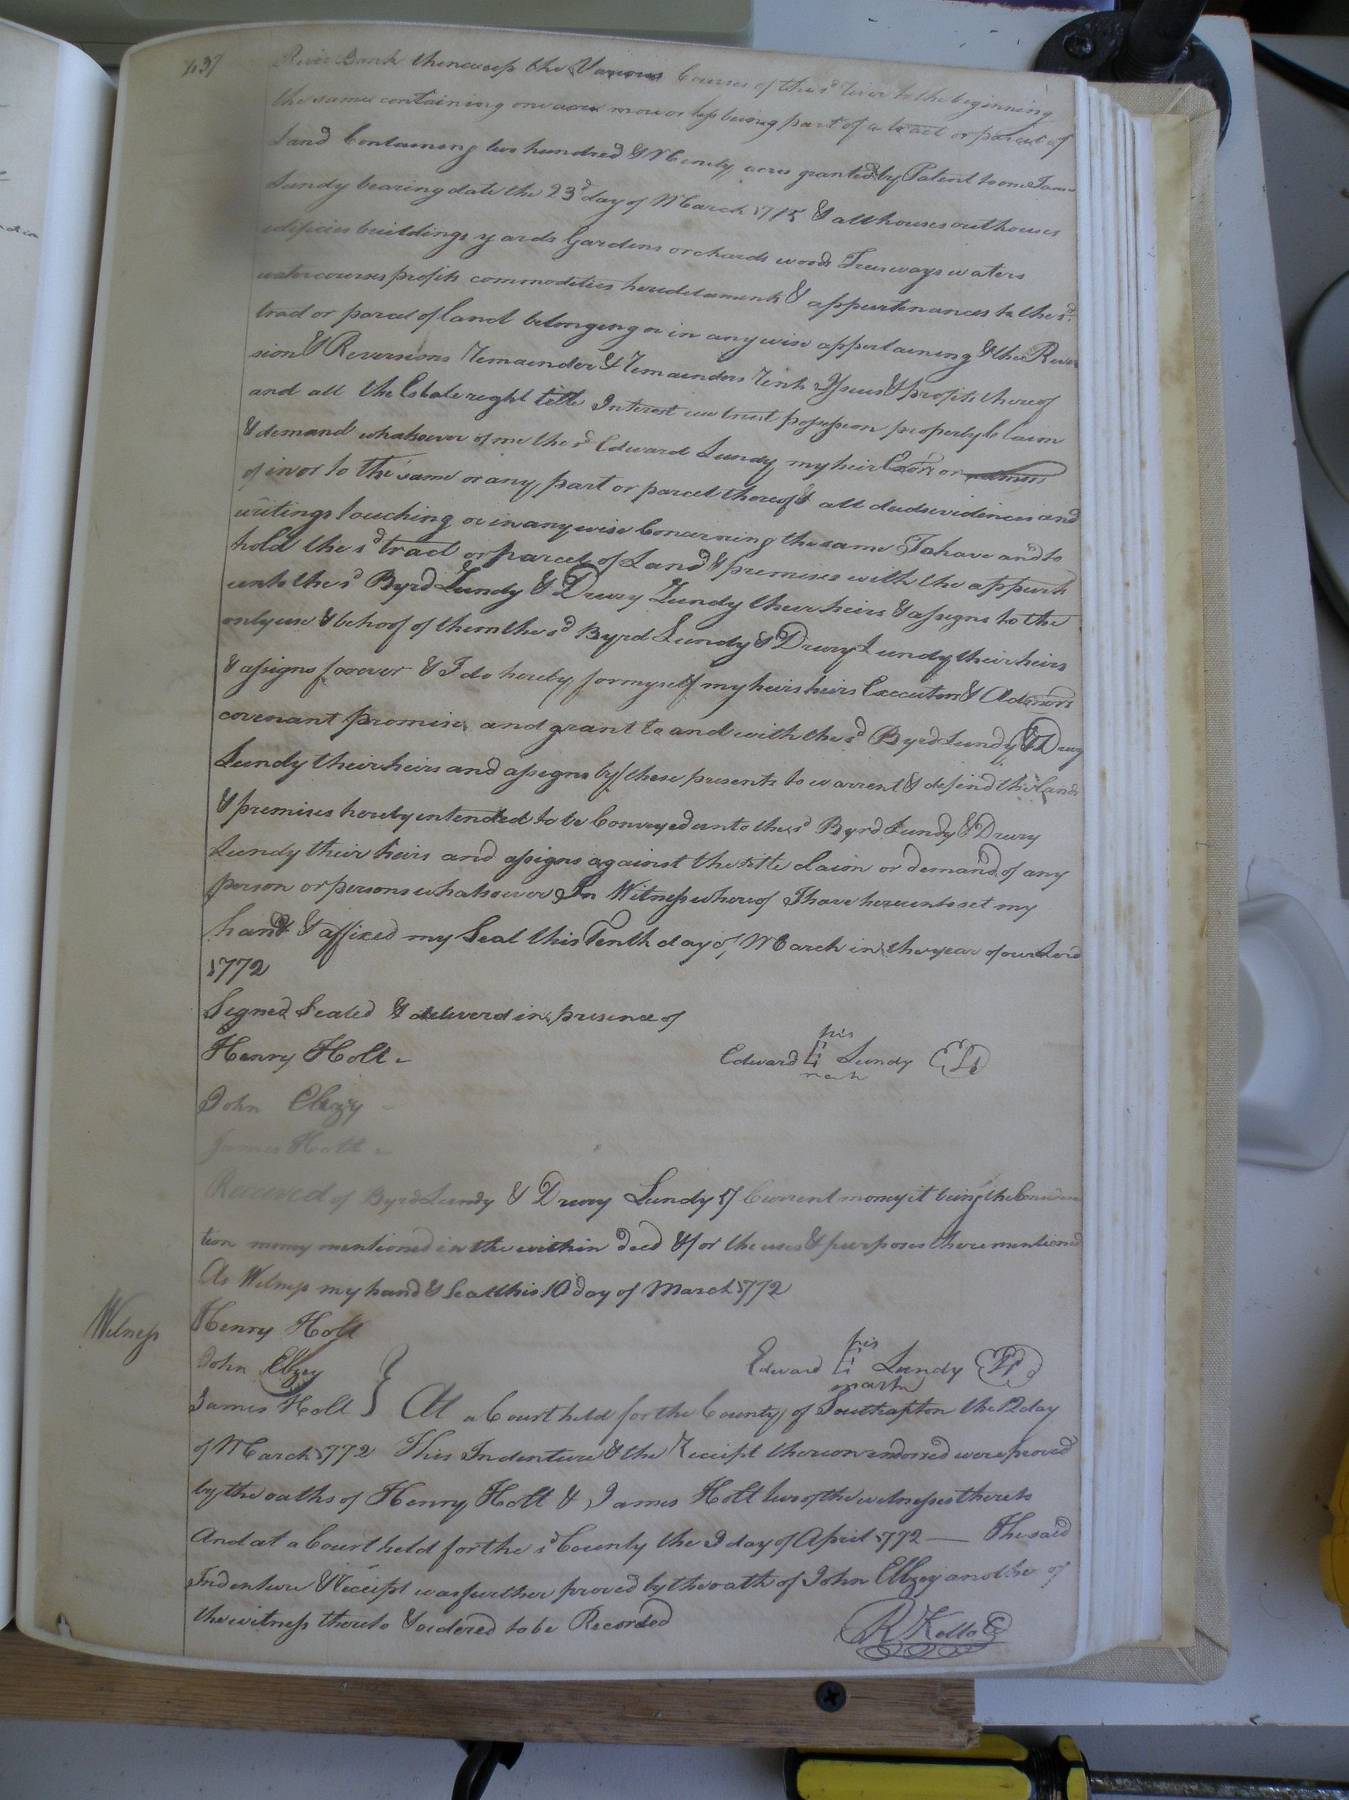 437
River Bank thence up the Various Courses of the sd River to the beginning
the same containing one acre more or less being part of a tract or parcel of
Land Containing two hundred & Ninety acres granted by Patent to one
Lundy bearing date the 23d day of March 1715 & all houses outhouses
edifices buildings yards Gardens orchards woods Trees ways waters
water courses profits commodities hereditaments & appurtenances to the sd
tract or parcel of land belonging or in any wise appertaining & the Rever
sion & Reversions Remainder & Remainders Rents Issues & profits thereof
and all the Estate right title Interest use trust possession property Claim
& demand whatsoever of me the sd Edward Lundy my heirs Exors or
of in or to the same or any part or parcel thereof & all deeds evidences and
writings touching or in any wise Concerning the same To have and to
hold the sd tract or parcel of Land & premises with the appurts
unto the sd Byrd Lundy & Drury Lundy their heirs & assigns to the
only use & behoof of them the sd Byrd Lundy & Drury Lundy their heirs
& assigns forever & I do hereby for myself my heirs heirs Executors & Admors
covenant promise and grant to and with the sd Byrd Lundy & Drury
Lundy their heirs and assigns by these presents to warrent & defend the sd Land
& premises hereby intended to be Conveyed unto the sd Byrd Lundy & Drury
Lundy their heirs and assigns against the title claim or demand of any
person or persons whatsoever In Witness whereof I have hereunto set my
hand & affixed my Seal this Tenth day of March in the year of our Lord
1772
Signed Sealed & deliverd in presence of
Henry Holt
his
Edward Lundy LS
mark
John Elzey
James Holt
Received of Byrd Lundy & Drury Lundy Current money it being the Considera
tion money mentioned in the within deed & for the uses & purposes there mentioned
As Witness my hand & Seal this 10 day of March 1772
Witness Henry Holt
his
John Elzey } Edward Lundy
mark
James Holt } At a Court held for the County of Southapton the 12 day
of March 1772 This Indenture & the Receipt thereon endorsed were proved
by the oaths of Henry Holt & James Holt two of the witnesses thereto
And at a Court held for the sd County the 9 day of April 1772 — The said
Indenture & Receipt was further proved by the oath of John Elzey another of
the witness thereto & ordered to be Recorded
R Kello C